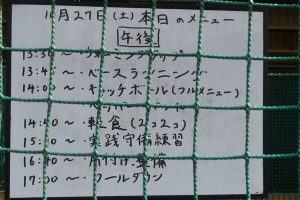 10月27日(土)本日のメニュー
午後
13:30〜・ウォーミングアップ
13:45〜・ベースランニング
14:00〜・キャッチボール(フルメニュー)
14:40〜・軽食(2コ2コ)
15:00〜・実践守備練習
16:40〜・片付け、整備
17:00〜・クールダウン